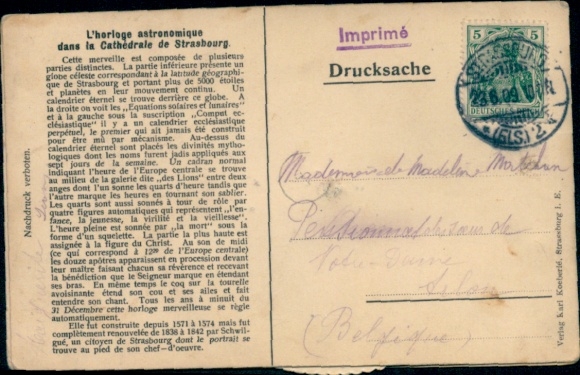 L'horloge astronomique
dans la Cathédrale de Strasbourg.
Cette merveille est composée de plusieurs
parties distinctes. La partie inférieure présente un
globe céleste correspondant à la latitude géographi-
que de Strasbourg et portant plus de 5000 étoiles
et planètes en leur mouvement continu. Un
calendrier éternel se trouve derrière ce globe. A
la droite on voit les „Equations solaires et lunaires"
et à la gauche sous la suscription „Comput ec-
clésiastique" il y a un calendrier ecclésiastique
perpétuel, le premier qui ait jamais été construit
pour être mû par mécanisme. Au-dessus du
calendrier éternel sont placés les divinités mytho-
logiques dont les noms furent jadis appliqués aux
sept jours de la semaine. Un cadran normal
indiquant l'heure de l'Europe centrale se trouve
au milieu de la galerie dite „des Lions" entre deux
anges dont l'un sonne les quarts d'heure tandis que
l'autre marque les heures en tournant son sablier.
Les quarts sont aussi sonnés à tour de rôle par
quatre figures automatiques qui représentent „l'en-
fance, la jeunesse, la virilité et la vieillesse".
L'heure pleine est sonnée par „la mort" sous la
forme d'un squelette. La partie la plus haute est
assignée à la figure du Christ. Au son de midi
(ce qui correspond à 12³⁰ de l'Europe centrale)
les douze apôtres apparaissent en procession devant
leur maître faisant chacun sa révérence et recevant
la bénédiction que le Seigneur marque en étendant
ses bras. En même temps le coq sur la tourelle
avoisinante étend son cou et ses ailes et fait
entendre son chant. Tous les ans à minuit du
31 Décembre cette horloge merveilleuse se règle
automatiquement.
Elle fut construite depuis 1571 à 1574 mais fut
complètement renouvelée de 1836 à 1842 par Schwil-
gué, un citoyen de Strasbourg dont le portrait se
trouve au pied de son chef-d'oeuvre.
Nachdruck verboten.
Imprimé
Drucksache
5 5
DEUTSCHES REICH
STRASSBURG
.6.09
*(ELS.) 2*
Mademoiselle Madeleine
Pensionnat
Notre Dame
(Belgique)
Verlag Karl Koeberlé, Strassburg I. E.